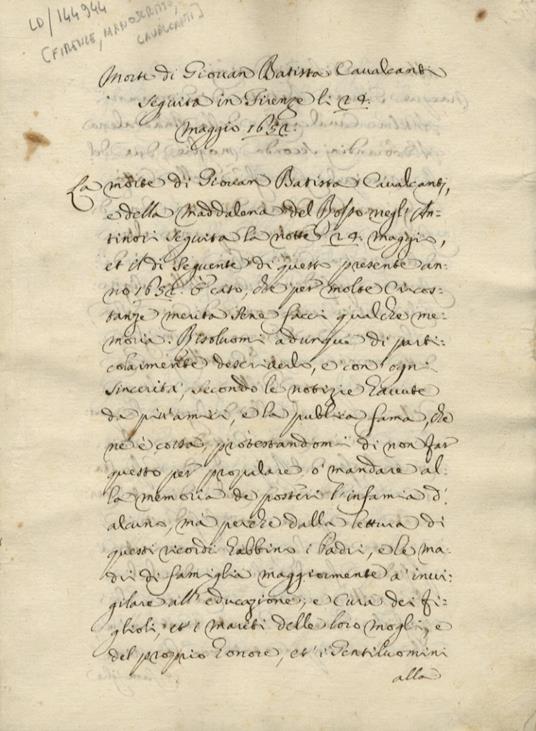 LD/144944
(FIRENZE, MANOSCRITTO,
CAVALCANTI)
Morte di Giovan Batista Cavalcanti
Seguita in Firenze li 24.
Maggio 1652.
La morte di Giovan Batista Cavalcanti,
e della Maddalena del Rosso negl'An-
tinori seguita la notte 24. Maggio,
et il dì seguente di questo presente an-
no 1652. è caso, che per molte circos-
tanze merita sene facci qualche me-
moria. Risoluomi adunque di parti-
colarmente descriverlo, e con ogni
sincerità, secondo le notizie havute
da più amici, e la publica fama, che
ne è corsa, protestandomi di non far
questo per propalare ò mandare al-
la memoria de posteri l'infamia d'
alcuno, mà perche dalla lettura di
questi ricordi habbino i Padri, e le ma-
dri di famiglia maggiormente a' invi-
gilare all'educazione, e cura dei fi-
glioli, et i mariti delle loro mogli, e
del proprio honore, et i Gentiluomini
alla